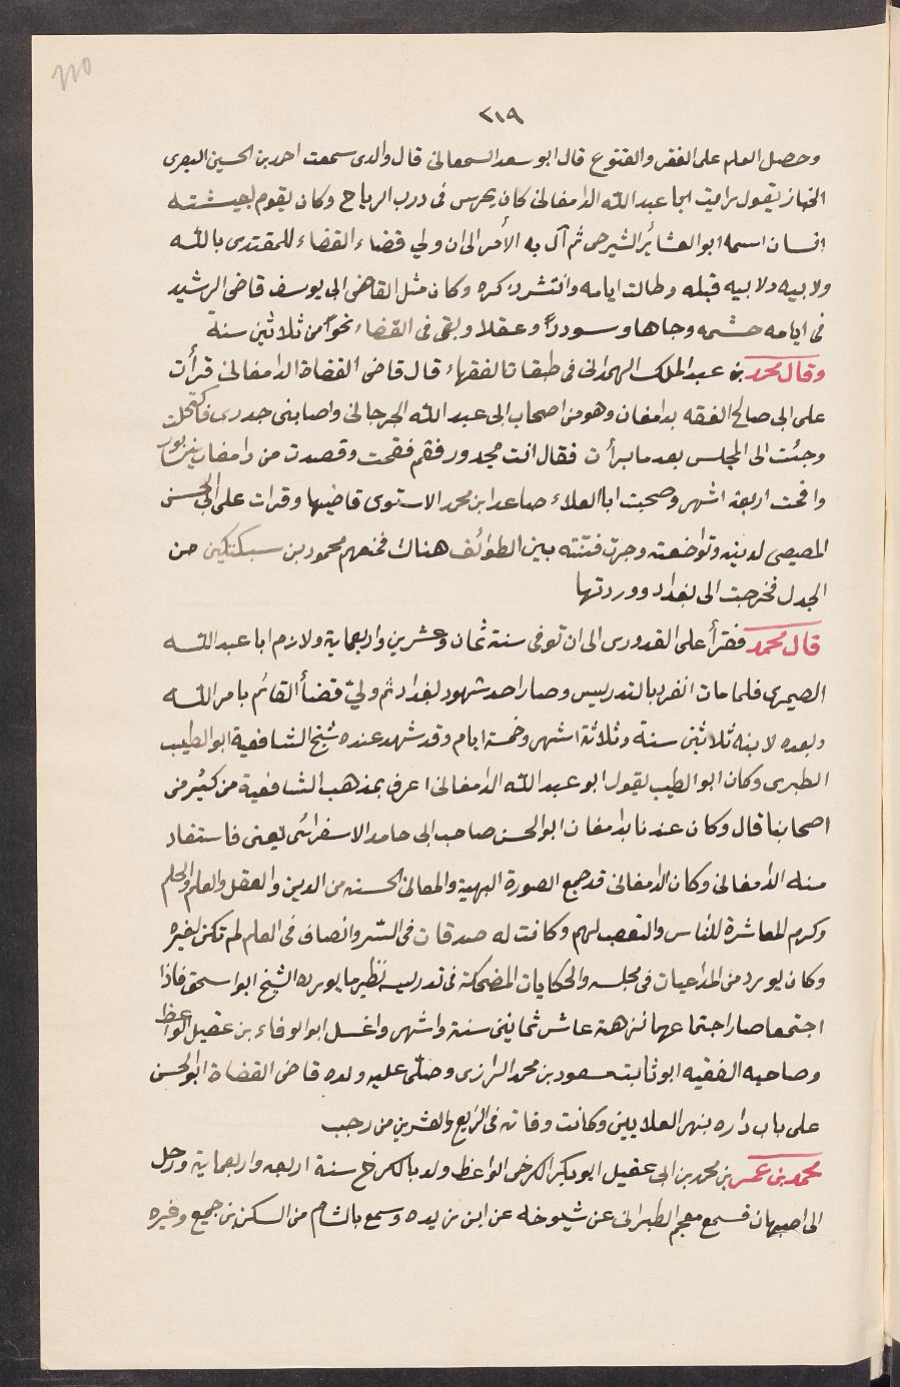 ٢١٩
وحصل العلم على الفقر والقنوع قال ابو سعد السمعانى قال والدى سمعت احمد بن الحسين البصرى
الخباز يقول رايت ابا عبد الله الدامغانى كان يحرس فى درب الرباح وكان يقوم بعيشته
انسان اسمه ابو العشائر الشيرجى ثم آل به الأمر الى ان ولي قضاء القضاء للمقتدى بالله
ولابيه ولابيه قبله وطالت ايامه وانتشر ذكره وكان مثل القاضى ابى يوسف قاضى الرشيد
فى ايامه حشمه وجاها وسوددًا وعقلا وبقى فى القضاء نحوًا من ثلاثين سنة
وقال محمد بن عبد الملك الهمدانى فى طبقات الفقهاء قال قاضى القضاة الدامغانى قرأت
على ابى صالح الفقه بدامغان وهو من اصحاب ابى عبد الله الجرجانى واصابنى جدرى فاكتحلت
وجئت الى المجلس بعدما برأت فقال انت مجدور فقم فقمت وقصدت من دامغان نيسابور
واقمت اربعة اشهر وصحبت ابا العلاء صاعد ابن محمد الاستوى قاضيها وقرات على ابى الحسن
المصيصى لدينه وتواضعه وجرت فتنته بين الطوائف هناك فمنعهم محمود بن سبكتكين من
الجدل فخرجت الى بغداد ووردتها
قال محمد فقرأ على القدورى الى ان توفى سنة ثمان وعشرين واربعماية ولازم ابا عبد الله
الصيمرى فلما مات انفرد بالتدريس وصار احد شهود بغداد ثم ولي قضأ القائم بامر الله
وبعده لابنه ثلاثين سنة وثلاثة اشهر وخمسة ايام وقد شهد عنده شيخ الشافعية ابو الطيب
الطبرى وكان ابو الطيب يقول ابو عبد الله الدامغانى اعرف بمذهب الشافعية من كثير من
اصحابنا قال وكان عندنا بدامغان ابو الحسن صاحب ابى حامد الاسفرائنى يعنى فاستفاد
منه الدامغانى وكان الدامغانى قد جمع الصورة البهية والمعانى الحسنه من الدين والعقل والعلم والحلم
وكرم المعاشرة للناس والتعصب لهم وكانت له صدقات فى السّر وانصاف فى العلم لم تكن لغيره
وكان يورد من المداعبات فى مجلسه والحكايات المضحكة فى تدريسه نظير ما يورده الشيخ ابو اسحق فاذا
اجتمعا صار اجتماعهما نزهة عاش ثمانين سنة واشهر واغسل ابو الوفاء بن عقيل الواعظ
وصاحبه الفقيه ابو ثابت مسعود بن محمد الرازى وصلّى عليه ولده قاضى القضاة ابو الحسن
على باب داره بنهر العلايين وكانت وفاته فى الرابع والعشرين من رجب
محمد بن عمر بن محمد بن ابى عقيل ابو بكر الكرخى الواعظ ولد بالكرخ سنة اربعه واربعماية ورحل
الى اصبهان فسمع معجم الطبرانى عن شيوخه عن ابن زيده وسمع بالشام من السكن بن جميع وغيره